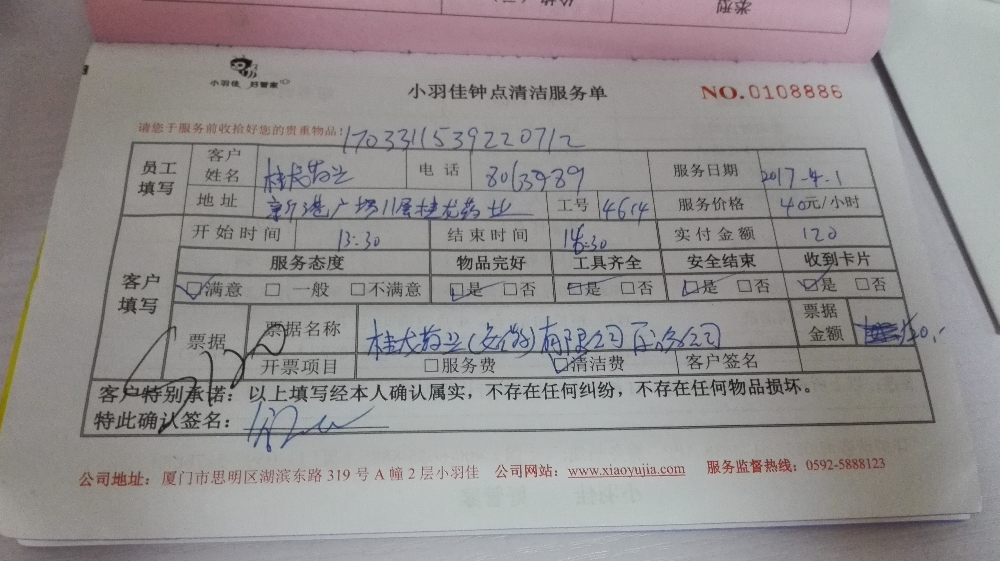 类型
小羽佳 好管家
小羽佳钟点清洁服务单
NO.0108886
请您于服务前收拾好您的贵重物品!
1703311539220712
员工填写 客户姓名 桂龙药业 电话 8063989 服务日期 2017-4.1
地址 新港广场11层桂龙药业 工号 4614 服务价格 40元/小时
客户填写 开始时间 13:30 结束时间 :30 实付金额 120
服务态度 物品完好 工具齐全 安全结束 收到卡片
☑满意 □一般 □不满意 ☑是 □否 ☑是 □否 ☑是 □否 ☑是 □否
票据 票据名称 桂龙药业(安徽)有限公司厦门分公司 票据金额 120.
开票项目 □服务费 ☑清洁费 客户签名
客户特别承诺:以上填写经本人确认属实,不存在任何纠纷,不存在任何物品损坏。
特此确认签名:
公司地址:厦门市思明区湖滨东路 319 号 A 幢 2 层小羽佳 公司网站:www.xiaoyujia.com 服务监督热线:0592-5888123